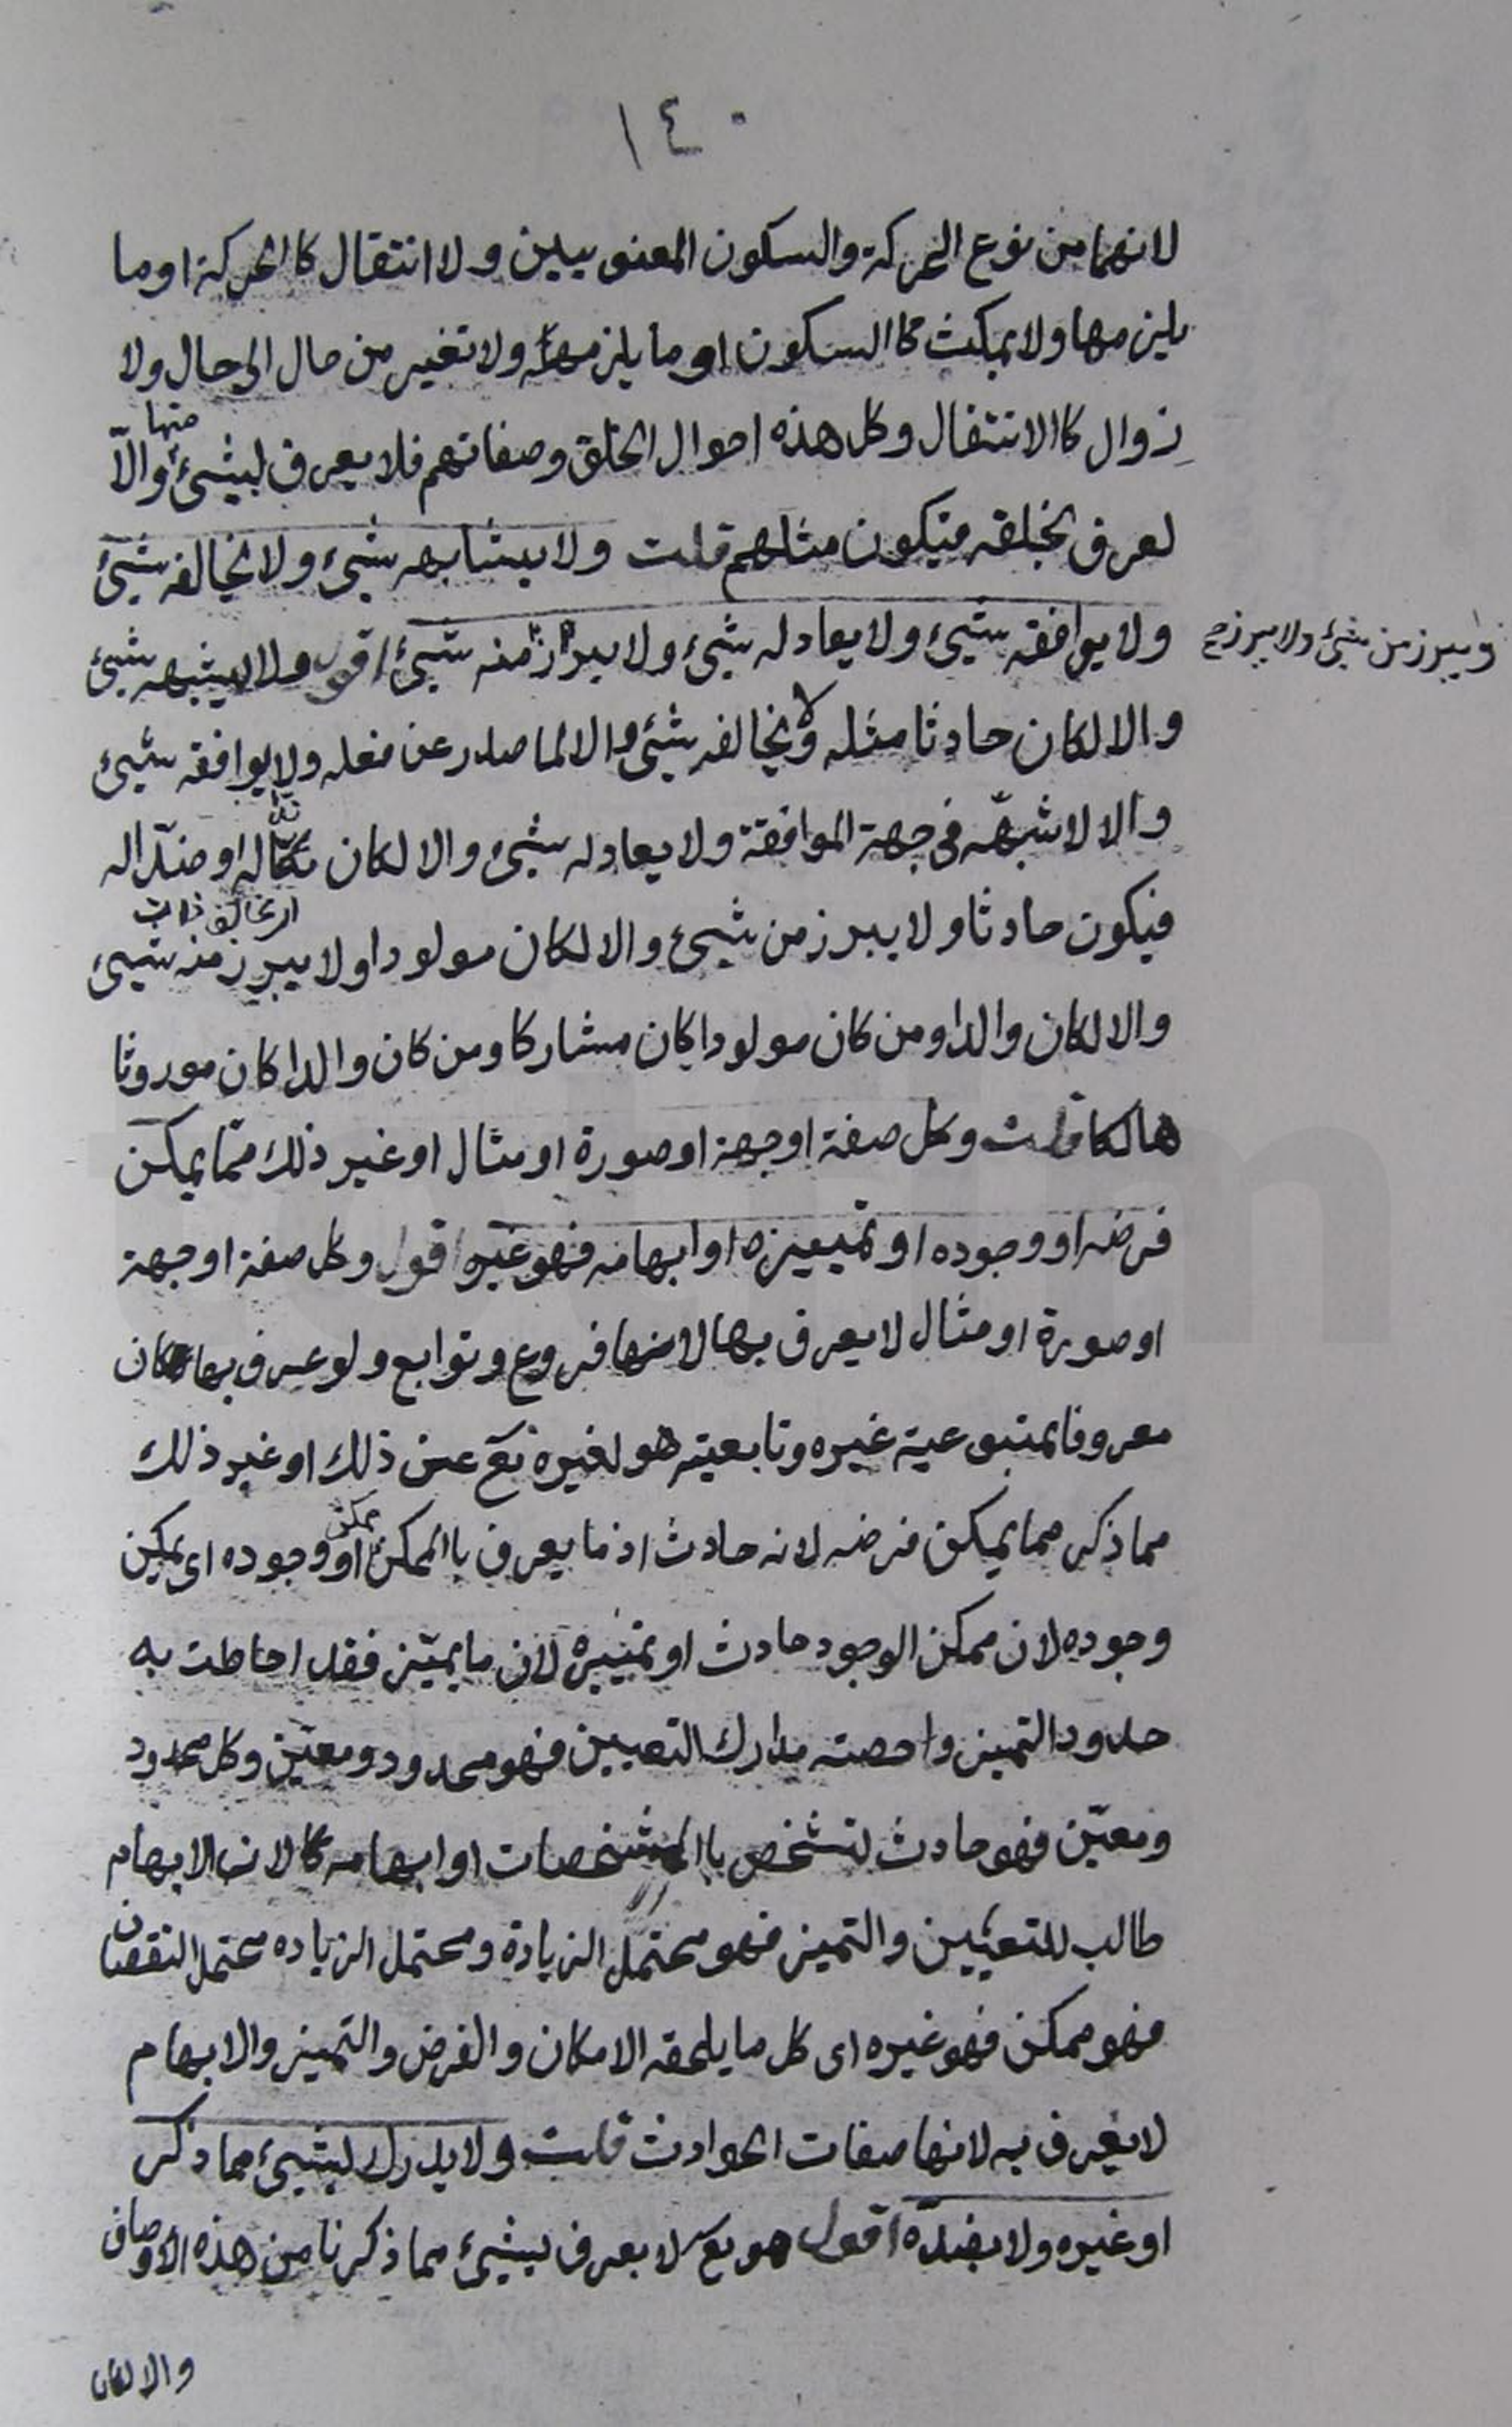 ١٤٠
لانهما من نوع الحركة والسكون المعنويين ولا انتقال كالحركة او ما
يلزمها ولا يمكث كالسكون او ما يلزمه ولا تغير من حال الى حال ولا
زوال كالانتقال وكل هذه احوال الخلق وصفاتهم فلا يعرف بشيئ منها والّا
لعرف بخلقه فيكون مثلهم قلت ولا يشابهه شيئ ولا يخالفه شيئ
ولا يوافقه شيئ ولا يعادله شيئ ولا يبرز منه شيئ اقول ولا يشبهه شيئ
ولا يبرز من شيئ ولا يبرز
والا لكان حادثا مثله ولا يخالفه شيئ والا لما صدر عن فعله ولا يوافقه شيئ
والا لاشبهه فى جهة الموافقة ولا يعادله شيئ والا لكان ندّا له او ضدّا له
فيكون حادثا ولا يبرز من شيئ والا لكان مولودا ولا يبرز منه شيئ
والا لكان والدا ومن كان مولودا كان مشاركا ومن كان والدا كان موروثا
هالكا قلت وكل صفة او جهة او صورة او مثال او غير ذلك ممّا يمكن
فرضه او وجوده او تمييزه او ابهامه فهو غيره اقول وكل صفة او جهة
او صورة او مثال لا يعرف بها لانها فروع وتوابع ولو عرف بها لكان
معروفا بمتبوعية غيره وتابعيته هو لغيره تع عن ذلك او غير ذلك
مما ذكر مما يمكن فرضه لانه حادث اذ ما يعرف باالممكن ممكن او وجوده اى يمكن
وجوده لان ممكن الوجود حادث او تمييزه لان ما يميّز فقد احاطت به
حدود التميز واحصته مدارك التعيين فهو محدود ومعيّن وكل محدود
ومعيّن فهو حادث لتشخص باالمشخصات او ابهامه لان الابهام
طالب للتعيين والتميز فهو محتمل الزيادة ومحتمل الزياده محتمل النقصان
فهو ممكن فهو غيره اى كل ما يلحقه الامكان والفرض والتميز والابهام
لا يعرف به لانها صفات الحوادث قلت ولا يدرك بشيئ مما ذكر
او غيره ولا بضدّه اقول هو تع لا يعرف بشيئ مما ذكرنا من هذه الاوصاف
والا لكان